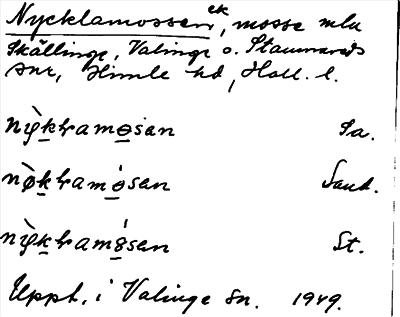 Nycklamossen ek, mosse mln
Skällinge, Valinge o. Stamnareds
snr, Himle hd, Hall. l.
nỳkɬamosan Sa.
nø̀kɬamósan Sand.
nỳkɬamósan St.
Uppt. i Valinge sn. 1949.